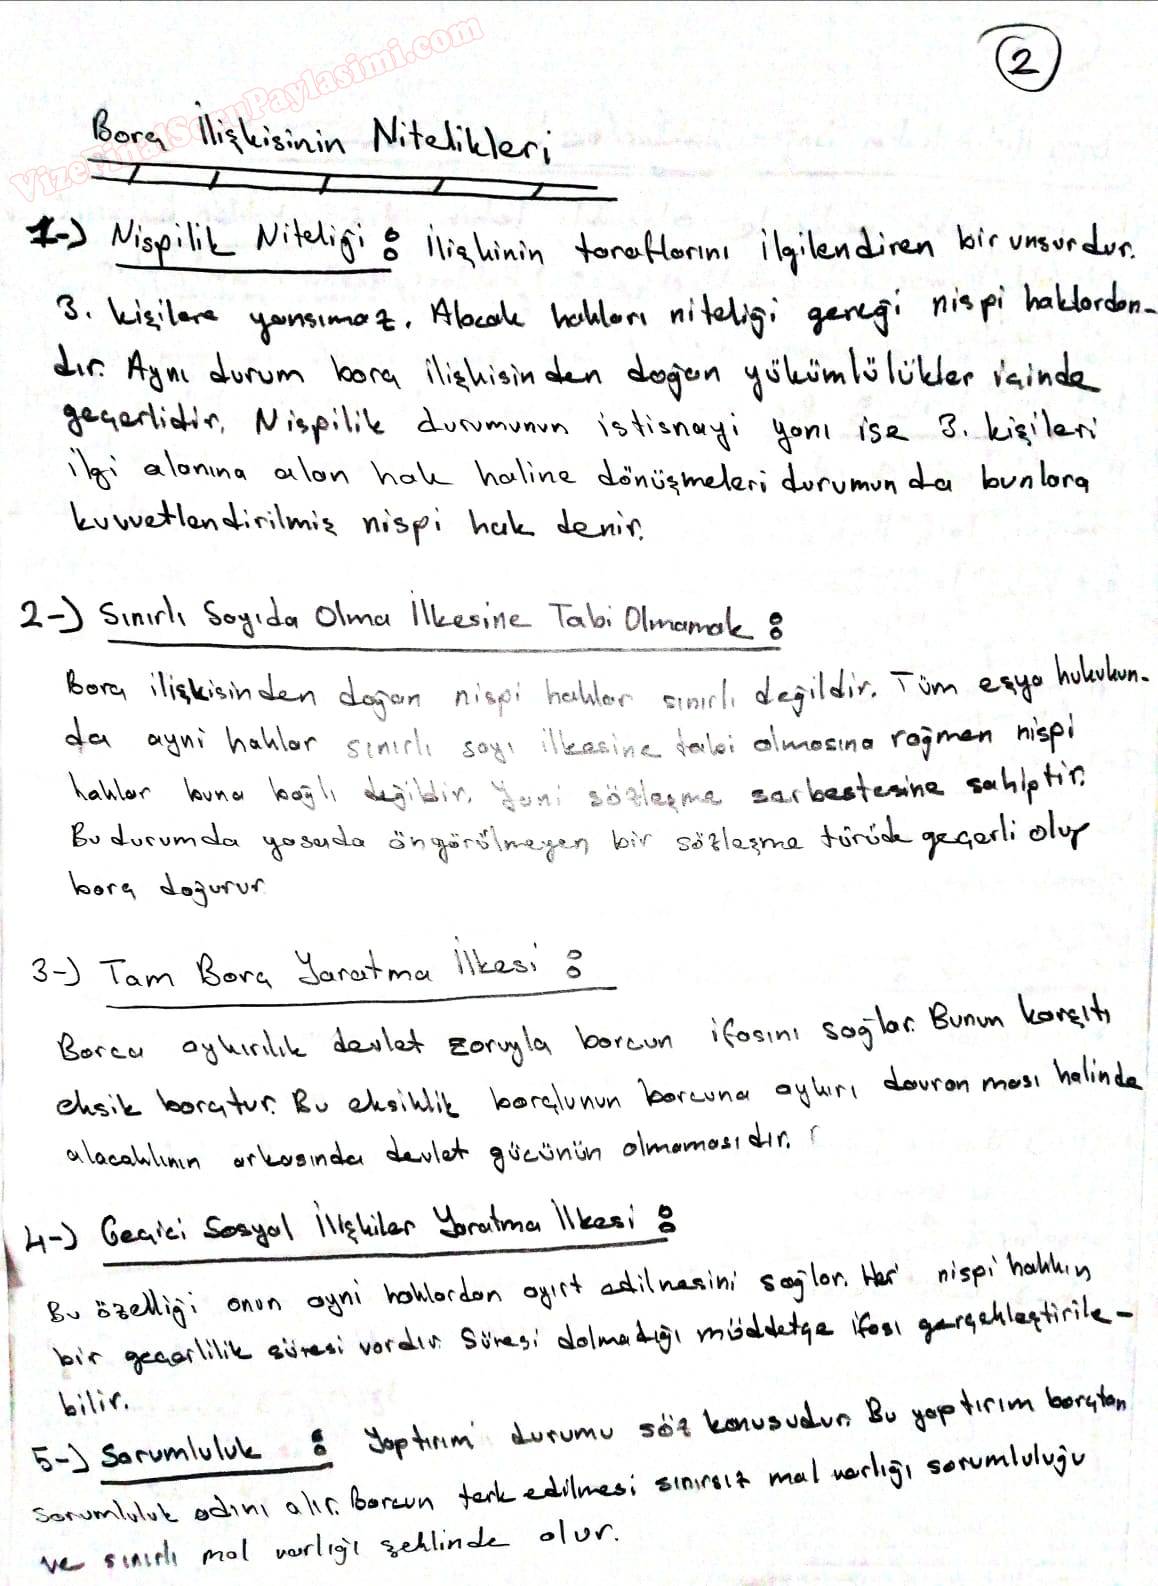 VizeFinalSoruPaylasimi.com
2
Borç İlişkisinin Nitelikleri
1-) Nispilik Niteliği: İlişkinin taraflarını ilgilendiren bir unsurdur.
3. kişilere yansımaz. Alacak hakları niteliği gereği nispi haklardan-
dır. Aynı durum borç ilişkisinden doğan yükümlülükler içinde
geçerlidir. Nispilik durumunun istisnayi yanı ise 3. kişileri
ilgi alanına alan hak haline dönüşmeleri durumunda bunlara
kuvvetlendirilmiş nispi hak denir.
2-) Sınırlı Sayıda Olma İlkesine Tabi Olmamak:
Borç ilişkisinden doğan nispi haklar sınırlı değildir. Tüm eşya hukukun-
da ayni haklar sınırlı sayı ilkesine tabi olmasına rağmen nispi
haklar buna bağlı değildir. Yani sözleşme serbestesine sahiptir.
Bu durumda yasada öngörülmeyen bir sözleşme türüde geçerli olup
borç doğurur
3-) Tam Borç Yaratma İlkesi:
Borca aykırılık devlet zoruyla borcun ifasını sağlar. Bunun karşıtı
eksik borçtur. Bu eksiklik borçlunun borcuna aykırı davranması halinde
alacaklının arkasında devlet gücünün olmamasıdır.
4-) Geçici Sosyal İlişkiler Yaratma İlkesi:
Bu özelliği onun ayni haklardan ayırt edilmesini sağlar. Her nispi hakkın
bir geçerlilik süresi vardır. Süresi dolmadığı müddetçe ifası gerçekleştirile-
bilir.
5-) Sorumluluk: Yaptırım durumu söz konusudur. Bu yaptırım borçtan
sorumluluk adını alır. Borcun terk edilmesi sınırsız mal varlığı sorumluluğu
ve sınırlı mal varlığı şeklinde olur.